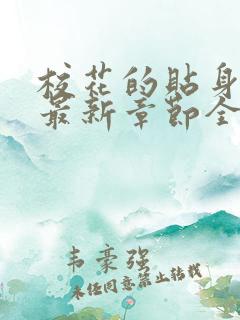 校花的贴身
最新章节全
韦豪强
未经同意禁止转载